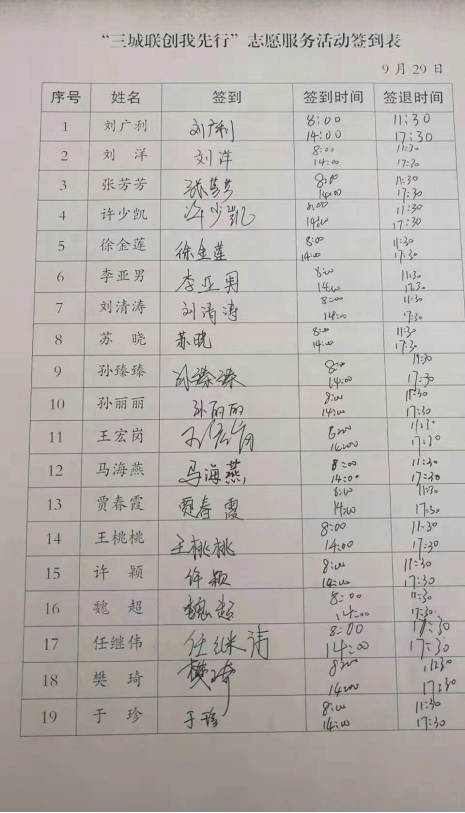 “三城联创我先行”志愿服务活动签到表
9月29日
序号 姓名 签到 签到时间 签退时间
1 刘广利 刘广利 8:00 11:30
14:00 17:30
2 刘 洋 刘洋 8:00 11:30
14:00 17:30
3 张芳芳 张芳芳 8:00 11:30
14:00 17:30
4 许少凯 许少凯 8:00 11:30
14:00 17:30
5 徐金莲 徐金莲 8:00 11:30
14:00 17:30
6 李亚男 李亚男 8:00 11:30
14:00 17:30
7 刘清涛 刘清涛 8:00 11:30
14:00 17:30
8 苏 晓 苏晓 8:00 11:30
14:00 17:30
9 孙臻臻 孙臻臻 8:00 11:30
14:00 17:30
10 孙丽丽 孙丽丽 8:00 11:30
14:00 17:30
11 王宏岗 王宏岗 8:00 11:30
14:00 17:30
12 马海燕 马海燕 8:00 11:30
14:00 17:30
13 贾春霞 贾春霞 8:00 11:30
14:00 17:30
14 王桃桃 王桃桃 8:00 11:30
14:00 17:30
15 许 颖 许颖 8:00 11:30
14:00 17:30
16 魏 超 魏超 8:00 11:30
14:00 17:30
17 任继伟 任继伟 8:00 11:30
14:00 17:30
18 樊 琦 樊琦 8:00 11:30
14:00 17:30
19 于 珍 于珍 8:00 11:30
14:00 17:30